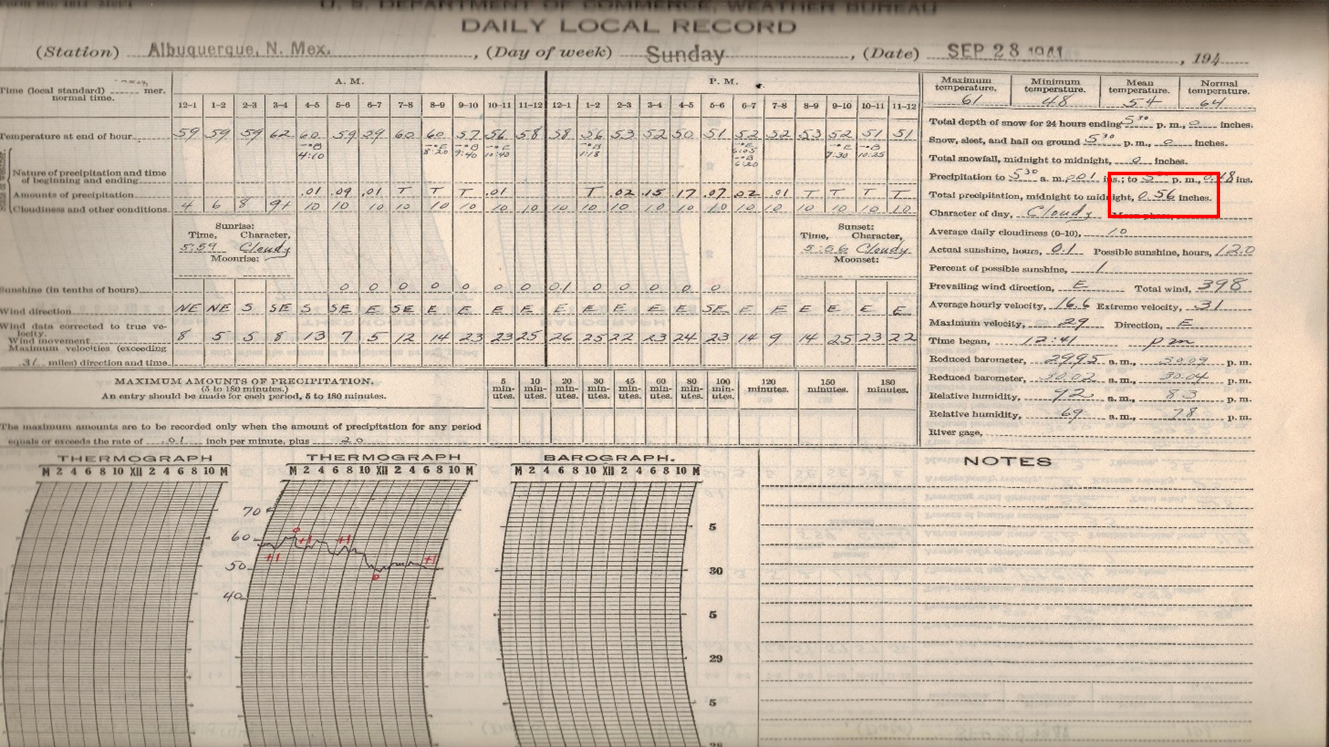 U. S. DEPARTMENT OF COMMERCE, WEATHER BUREAU
DAILY LOCAL RECORD
(Station) Albuquerque, N. Mex. , (Day of week) Sunday , (Date) SEP 28 1941 , 194
Time (local standard) mer. normal time.
A. M. P. M.
12–1 1–2 2–3 3–4 4–5 5–6 6–7 7–8 8–9 9–10 10–11 11–12 12–1 1–2 2–3 3–4 4–5 5–6 6–7 7–8 8–9 9–10 10–11 11–12
Temperature at end of hour 59 59 59 62 60 59 59 60 60 57 56 58 58 56 53 52 50 51 52 52 53 52 51 51
Nature of precipitation and time of beginning and ending
Amounts of precipitation .01 .09 .01 T T T .01 T .02 .15 .17 .07 .02 .01 T T T T
Cloudiness and other conditions 4 6 8 9+ 10 10 10 10 10 10 10 10 10 10 10 10 10 10 10 10 10 10 10 10
Sunrise: Sunset:
Time, Character, Time, Character,
5:59 Cloudy 5:56 Cloudy
Moonrise: Moonset:
Sunshine (in tenths of hours) 0 0 0 0 0 0 0 0.1 0 0 0 0 0
Wind direction NE NE S SE S SE E SE E E E E E E E E E SE E E E E E E
Wind data corrected to true velocity.
Wind movement 8 5 5 8 13 7 5 12 14 23 23 25 26 25 22 23 24 23 14 9 14 25 23 22
Maximum velocities (exceeding
31 miles) direction and time
MAXIMUM AMOUNTS OF PRECIPITATION.
(5 to 180 minutes.)
An entry should be made for each period, 5 to 180 minutes.
5 minutes. 10 minutes. 20 minutes. 30 minutes. 45 minutes. 60 minutes. 80 minutes. 100 minutes. 120 minutes. 150 minutes. 180 minutes.
The maximum amounts are to be recorded only when the amount of precipitation for any period
equals or exceeds the rate of .01 inch per minute, plus .20
Maximum temperature. Minimum temperature. Mean temperature. Normal temperature.
61 48 54 64
Total depth of snow for 24 hours ending 5³⁰ p. m., 0 inches.
Snow, sleet, and hail on ground 5³⁰ p. m., 0 inches.
Total snowfall, midnight to midnight, 0 inches.
Precipitation to 5³⁰ a. m., 0.01 ins.; to 5 p. m., ins.
Total precipitation, midnight to midnight, 0.56 inches.
Character of day, Cloudy
Average daily cloudiness (0–10), 10
Actual sunshine, hours, 0.1 Possible sunshine, hours, 12.0
Percent of possible sunshine, 1
Prevailing wind direction, E Total wind, 398
Average hourly velocity, 16.6 Extreme velocity, 31
Maximum velocity, 29 Direction, E
Time began, 12:41 pm
Reduced barometer, 29.95 a. m., p. m.
Reduced barometer, 30.02 a. m., 30.04 p. m.
Relative humidity, 72 a. m., 83 p. m.
Relative humidity, 69 a. m., 78 p. m.
River gage,
THERMOGRAPH THERMOGRAPH BAROGRAPH. NOTES
M 2 4 6 8 10 XII 2 4 6 8 10 M M 2 4 6 8 10 XII 2 4 6 8 10 M M 2 4 6 8 10 XII 2 4 6 8 10 M
70
60
50
40
5
30
5
29
5